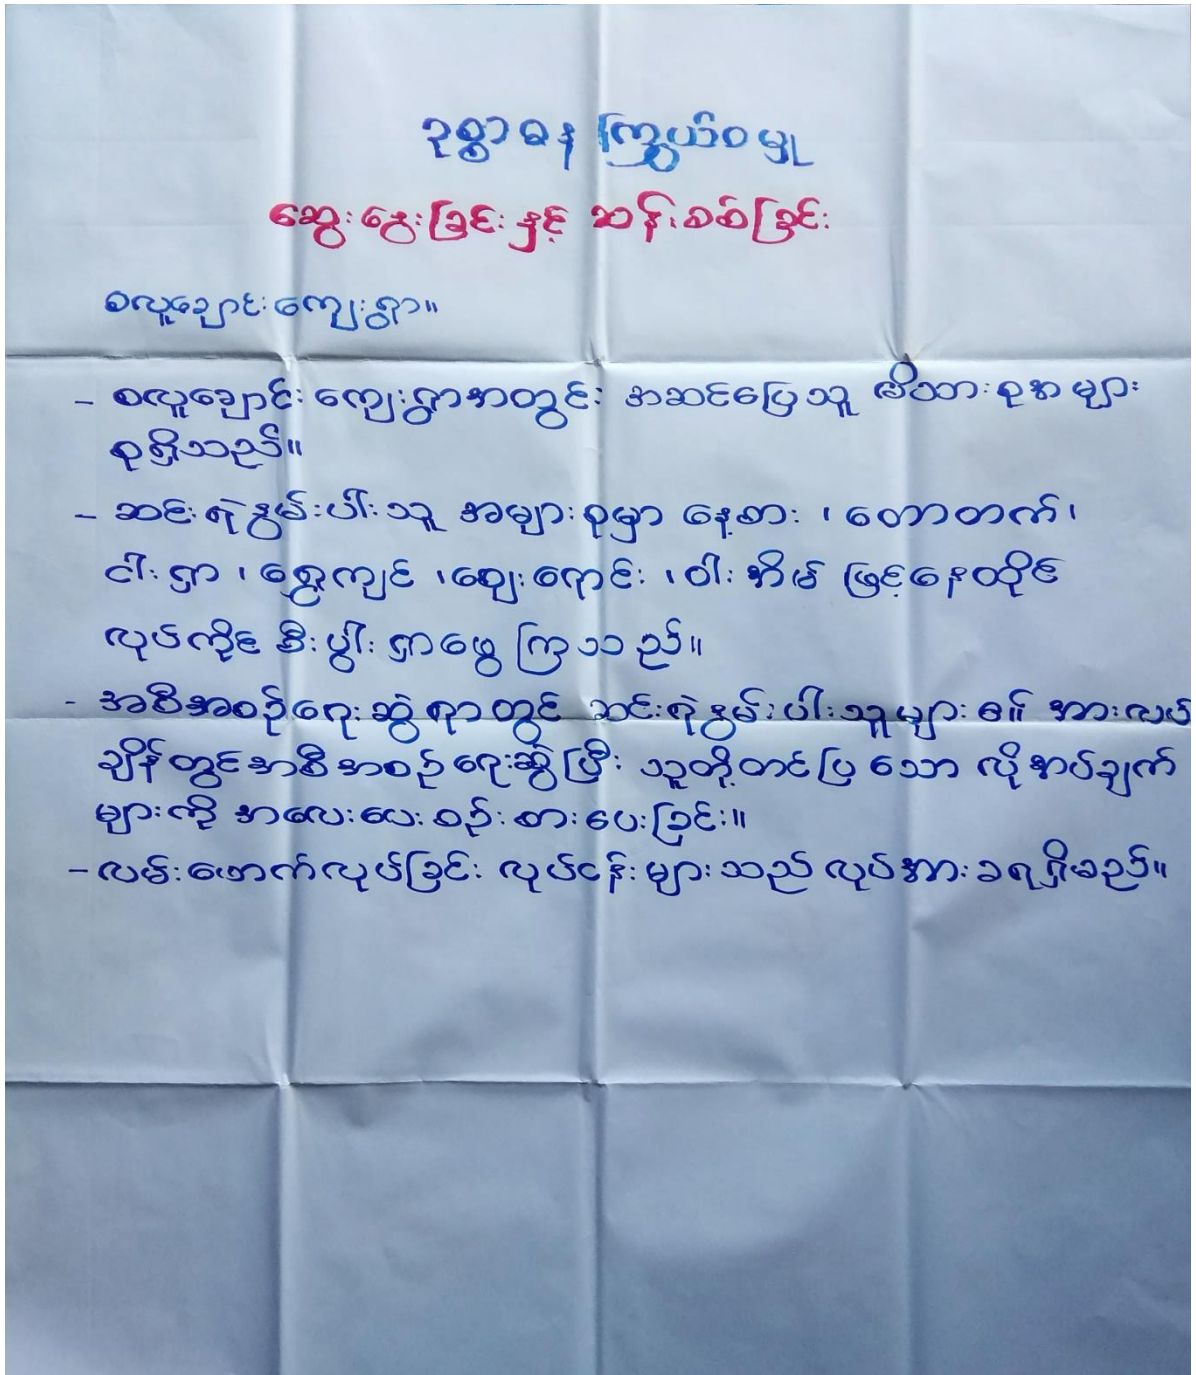 ဥစ္စာဓန ကြွယ်ဝမှု
ဆွေးနွေးခြင်းနှင့် ဆန်းစစ်ခြင်း
စလူချောင်းကျေးရွာ။
- စလူချောင်း ကျေးရွာအတွင်း အဆင်ပြေသူ မိသားစုအများ
စုရှိသည်။
- ဆင်းရဲနွမ်းပါးသူ အများစုမှာ နေ့စား ၊ တောတက်၊
ငါးရှာ ၊ ရွှေကျင် ၊ ဈေးရောင်း ၊ ဝါးအိမ် ဖြင့်နေထိုင်
လုပ်ကိုင် စီးပွါးရှာဖွေ ကြသည်။
- အစီအစဉ်ရေးဆွဲရာတွင် ဆင်းရဲနွမ်းပါးသူများ၏ အားလပ်
ချိန်တွင်အစီအစဉ်ရေးဆွဲပြီး သူတို့တင်ပြသော လိုအပ်ချက်
များကို အလေးပေးစဉ်းစားပေးခြင်း။
- လမ်းဖောက်လုပ်ခြင်း လုပ်ငန်းများသည် လုပ်အားခရရှိမည်။